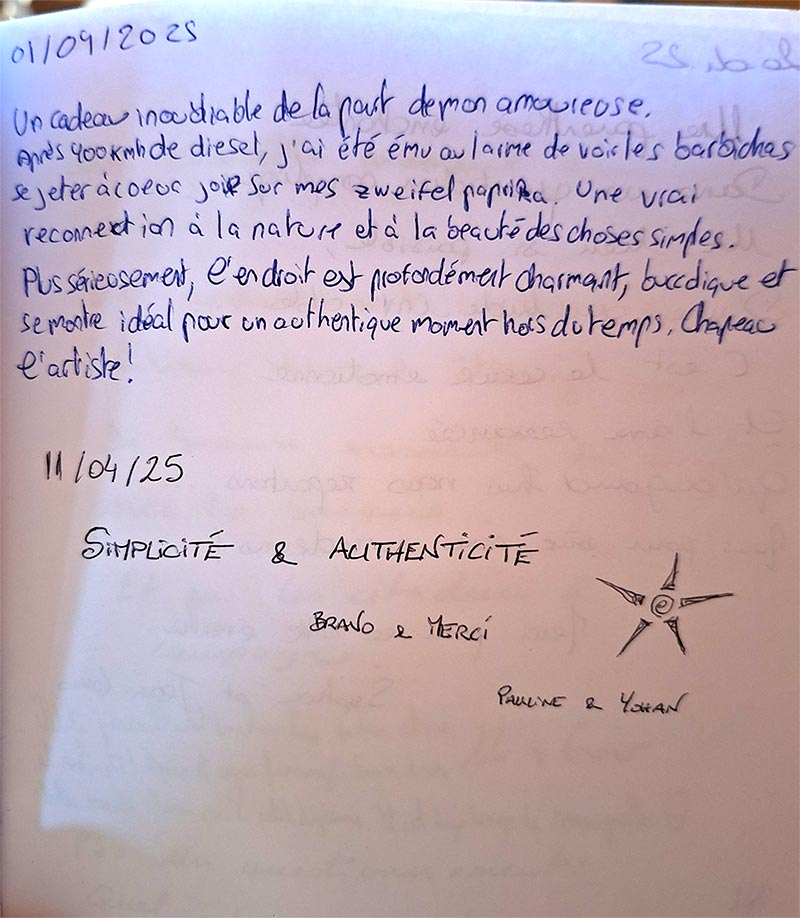 01/09/2025
Un cadeau inoubliable de la part de mon amoureuse.
Après 400kmh de diesel, j'ai été ému au larme de voir les barbichas
se jeter à coeur joie sur mes zweifel paprika. Une vrai
reconnextion à la nature et à la beauté des choses simples.
Plus sérieusement, l'endroit est profondément charmant, bucodique et
se montre idéal pour un authentique moment hors du temps. Chapeau
l'artiste!
11/04/25
SIMPLICITÉ & AUTHENTICITÉ
BRAVO & MERCI
PAULINE & YOHAN